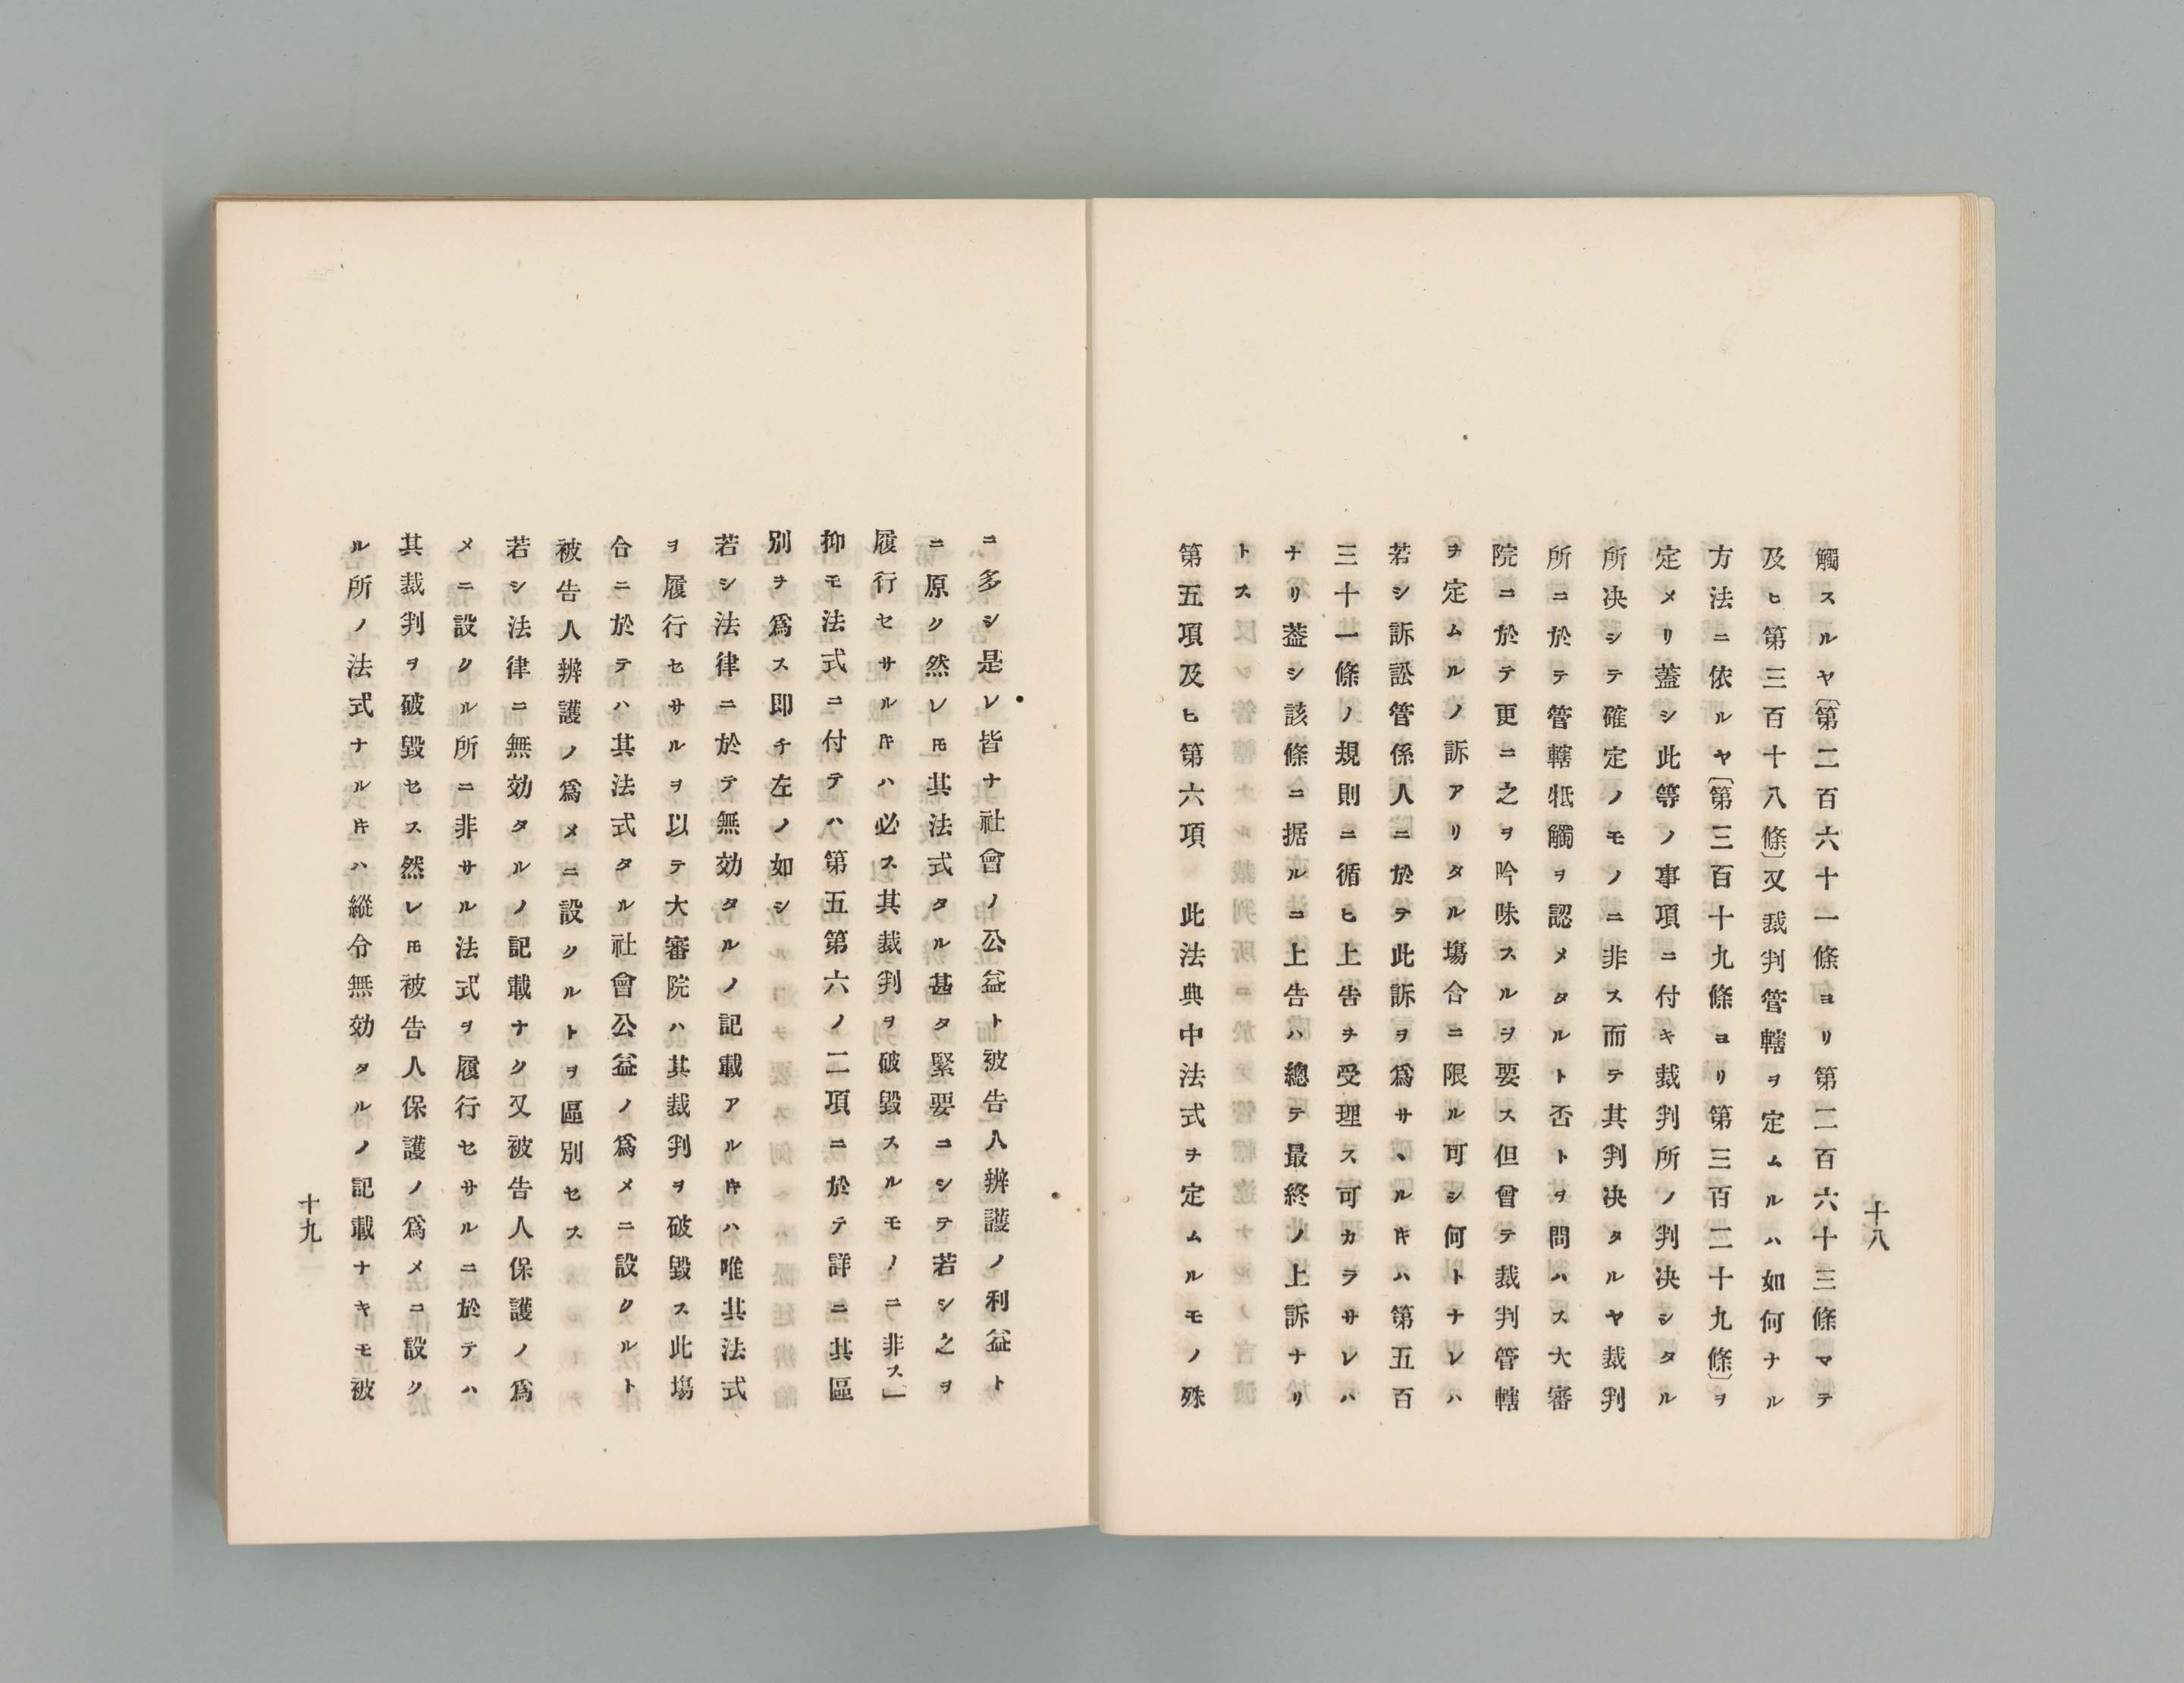 十八
觸スルヤ〔第二百六十一條ヨリ第二百六十三條マテ
及ヒ第三百十八條〕又裁判管轄ヲ定ムルハ如何ナル
方法ニ依ルヤ〔第三百十九條ヨリ第三百二十九條〕ヲ
定メリ蓋シ此等ノ事項ニ付キ裁判所ノ判决シタル
所决シテ確定ノモノニ非ス而テ其判决タルヤ裁判
所ニ於テ管轄牴觸ヲ認メタルト否トヲ問ハス大審
院ニ於テ更ニ之ヲ吟味スルヲ要ス但曾テ裁判管轄
ヲ定ムルノ訴アリタル塲合ニ限ル可シ何トナレハ
若シ訴訟管係人ニ於テ此訴ヲ爲サヽルキハ第五百
三十一條ノ規則ニ循ヒ上告ヲ受理ス可カラサレハ
ナリ葢シ該條ニ据ルニ上告ハ總テ最終ノ上訴ナリ
トス
第五項及ヒ第六項　此法典中法式ヲ定ムルモノ殊
ニ多シ是レ皆ナ社會ノ公益ト被告人辨護ノ利益ト
ニ原ク然レ𪜈其法式タル甚タ緊要ニシテ若シ之ヲ
履行セサルキハ必ス其裁判ヲ破毀スルモノニ非ス」
抑モ法式ニ付テハ第五第六ノ二項ニ於テ詳ニ其區
別ヲ爲ス即チ左ノ如シ
若シ法律ニ於テ無効タルノ記載アルキハ唯其法式
ヲ履行セサルヲ以テ大審院ハ其裁判ヲ破毀ス此塲
合ニ於テハ其法式タル社會公益ノ爲メニ設クルト
被告人辨護ノ爲メニ設クルトヲ區別セス
若シ法律ニ無効タルノ記載ナク又被告人保護ノ爲
メニ設クル所ニ非サル法式ヲ履行セサルニ於テハ
其裁判ヲ破毀セス然レ𪜈被告人保護ノ爲メニ設ク
ル所ノ法式ナルキハ縱令無効タルノ記載ナキモ被
十九